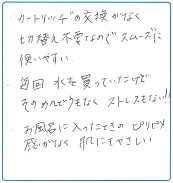 ・カートリッジの交換がなく
切替え不要なのでスムーズに
使いやすい.
・毎回 水を買っていたけど
そのめんどうもなく ストレスもない!!
・お風呂に入ったときの ピリピリ
感がなく 肌にもやさしい